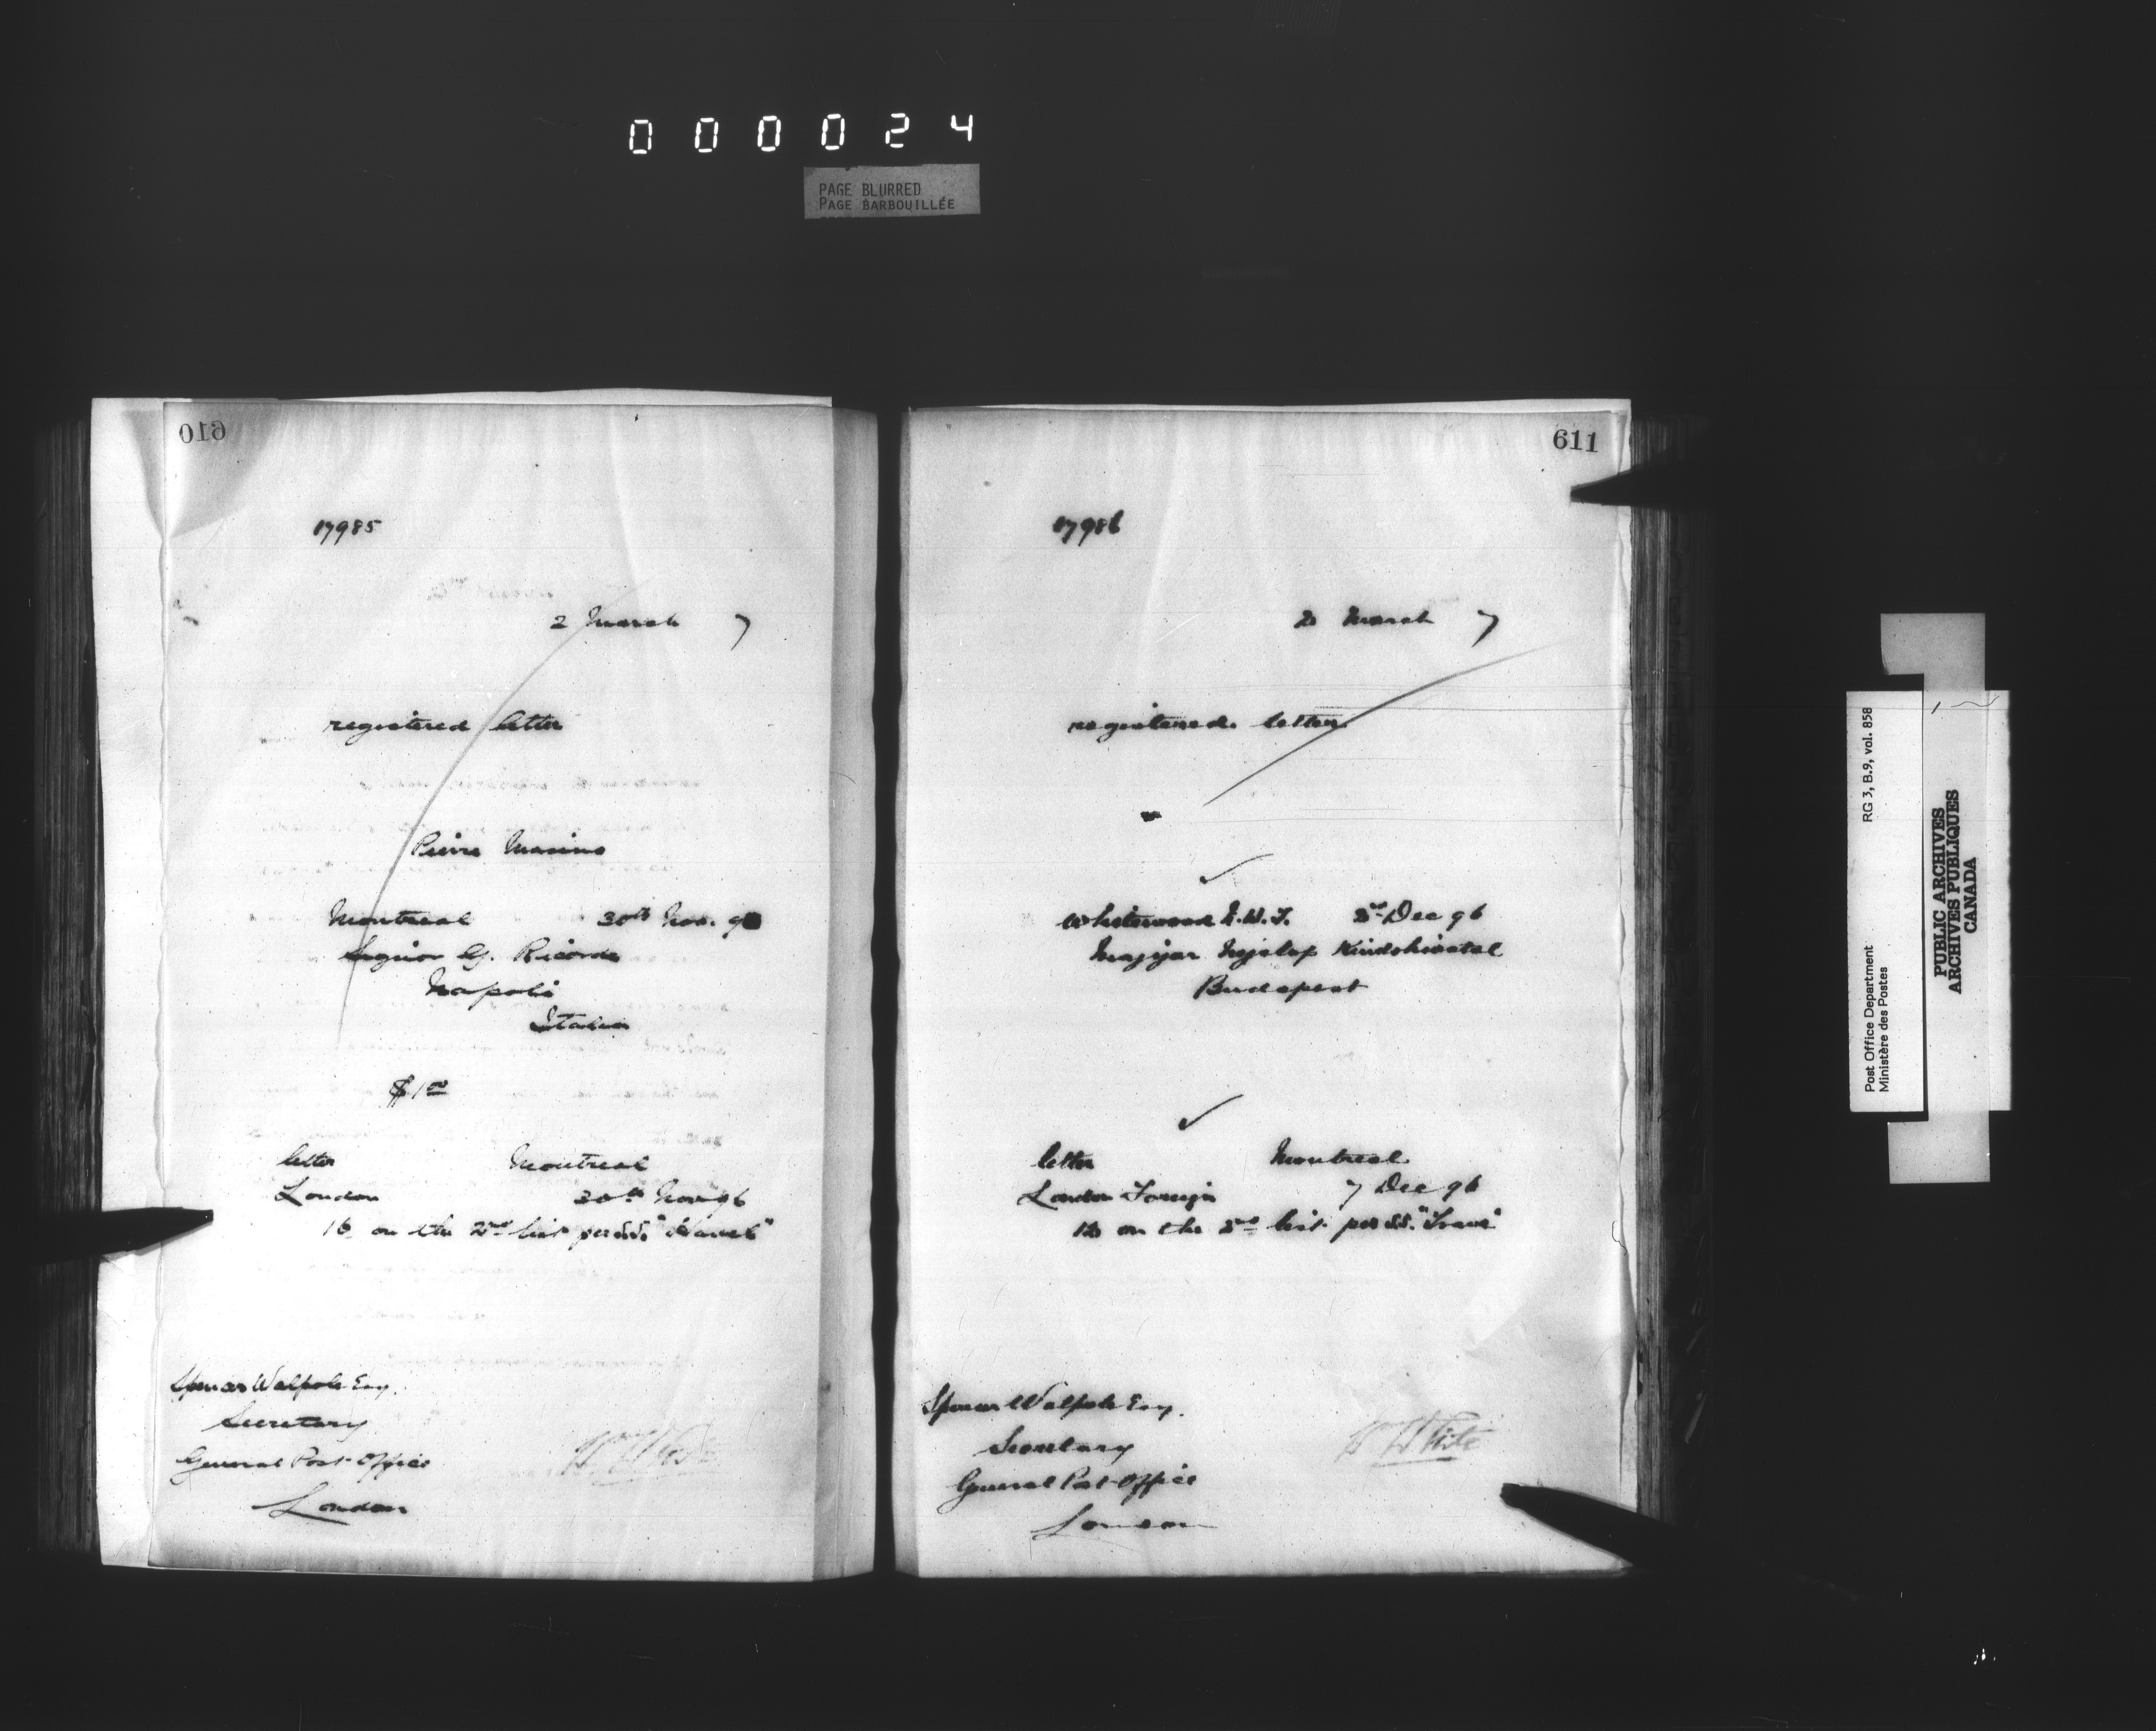 000024
PAGE BLURRED
PAGE BARBOUILLÉE
610
17985
2 March 7
registered letter
Pierre Masino
Montreal 30th Nov. 96
Signor G. Ricordi
Napoli
Italia
$1 00
letter Montreal
London 30th Nov 96
16 on the 2nd list per S.S. "Havel"
Spencer Walpole Esq.
Secretary
General Post-Office
London
W White
611
17986
2 March 7
registered letter
Whitewood N.W.T. 2nd Dec 96
Budapest
letter Montreal
London Foreign 7 Dec 96
12 on the 2nd list per S.S. "Trave"
Spencer Walpole Esq.
Secretary
General Post-Office
London
W White
Post Office Department RG 3, B.9, vol. 858
Ministère des Postes
PUBLIC ARCHIVES
ARCHIVES PUBLIQUES
CANADA